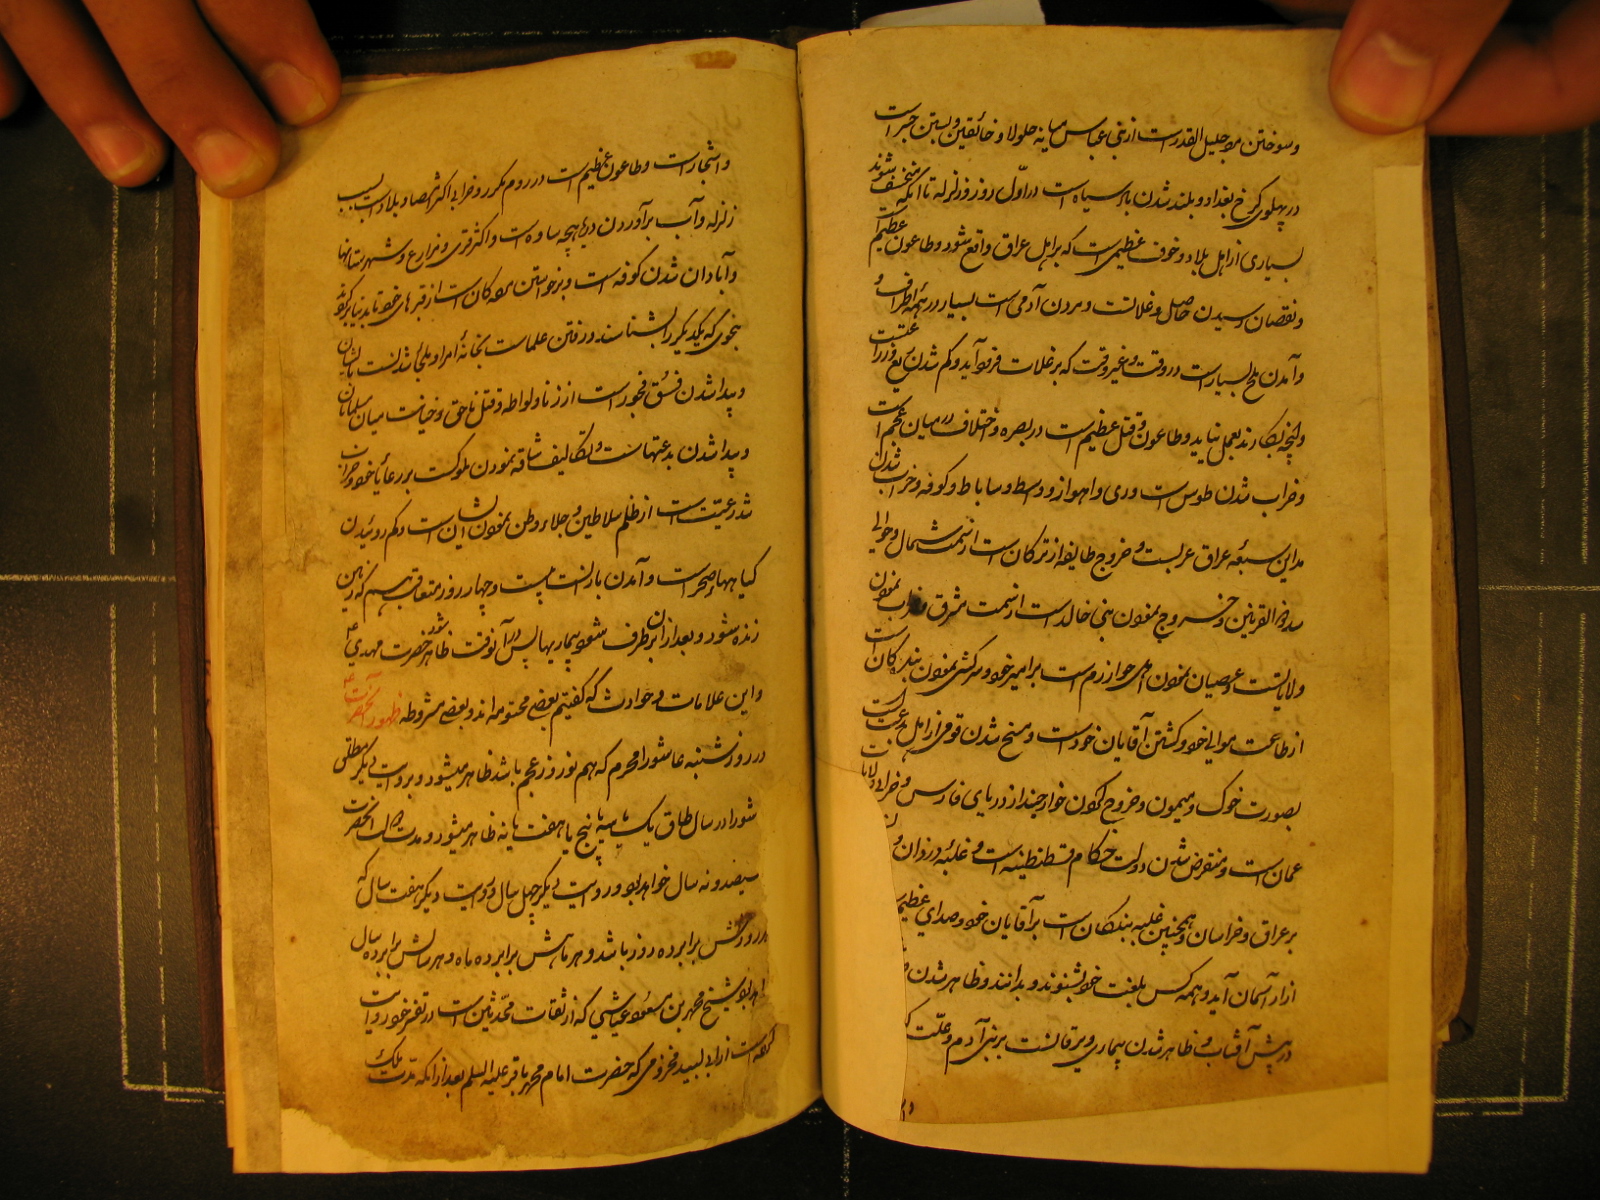 و سوختن مرد جلیل القدرست از بنی عباس میانه جلولا و خانقین و بستن جسرست
در پهلوی کرخ بغداد و بلند شدن باد سیاه است در اوّل روز و زلزله تا آنکه منخسف شوند
بسیاری از اهل بلاد و خوف عظیمی است که بر اهل عراق واقع شود و طاعون عظیم است
و نقصان رسیدن حاصل و غلاتست و مردن آدمی است بسیار در همه اطراف و
و آمدن ملخ بسیار است در وقت و غیر وقت که بر غلات فرود آید و کم شدن ریع زراعتست
و آنچه بکارند بعمل نیاید و طاعون و قتل عظیم است در بصره و اختلاف در میان عجم است
و خراب شدن طوس است و ری و اهواز و واسط و ساباط و کوفه و خراب شدن
مداین سبعه عراق عربست و خروج طایفه از ترکان است از سمت شمال و حوالی
سد ذو القرنین و خروج نمودن بنی خالد است از سمت شرق و خراب نمودن
ولایاتست و عصیان نمودن اهل خوارزم است بر امیر خود و سرکشی نمودن بندکان است
از طاعت موالی خود و کشتن آقایان خود است و مسخ شدن قومی از اهل بدعت است
بصورت خوک و میمون و خروج نمودن خوارج چند از دریای فارس و خرابی ولایات
عمان است و منقرض شدن دولت حکام قسطنطنیه است و غلبه دزدان و
بر عراق و خراسان و همچنین غلبه بندکان است بر آقایان خود و صدای عظیم
از آسمان آید و همه کس بلغت خود بشنوند و بدانند و ظاهر شدن
در پیش آفتاب و ظاهر شدن بیماری و یرقانست بر بنی آدم و علّت
و اشجار است و طاعون عظیم است در روم مکرر و خرابی اکثر امصار و بلاد است بسبب
زلزله و آب برآوردن دریاچه ساوه است و اکثر قری و مزارع و شهرستانها
و آبادان شدن کوفه است و برخواستن مردکان است از قبرهای خود تا بدنیا برکردند
بنحوی که یکدیکر را بشناسند و رفتن علماست بخانهٔ امرا و ملجا شدنست بایشان
و پیدا شدن فسق و فجور است از زنا و لواطه و قتل ناحق و خیانت میان مسلمانان
و پیدا شدن بدعتهاست و تکالیف شاقه نمودن ملوکست بر رعایا خود و خراب
شدن رعیت است از ظلم سلاطین و جلاء وطن نمودن ایشان است و کم روئیدن
کیاههاء صحراست و آمدن بارانست بیست و چهار روز متعاقب هم که زمین
زنده شود و بعد از آن برطرف شود بیماریها پس در آنوقت ظاهر شود حضرت مهدی ع
و این علامات و حوادث که کفتیم بعضی محتومه اند و بعضی مشروطه ظهور آنحضرت ع
در روز شنبه عاشورا محرم که هم نوروز عجم باشد ظاهر میشود و بروایت دیکر مطلق
عاشورا در سال طاق یک یا سه یا پنج یا هفت یا نه ظاهر میشود و مدت ملک آنحضرت
سیصد و نه سال خواهد بود و بروایت دیکر چهل سال و بروایت دیکر هفت سال که
هر روزش برابر ده روز باشد و هر ماهش برابر ده ماه و هر سالش برابر ده سال
شیخ محمد بن مسعود عیاشی که از ثقات محدّثین است در تفسیر خود روایت
کرده است از ابی لبید مخزومی که حضرت امام محمد باقر علیه السلم بعد از آنکه مدت ملک